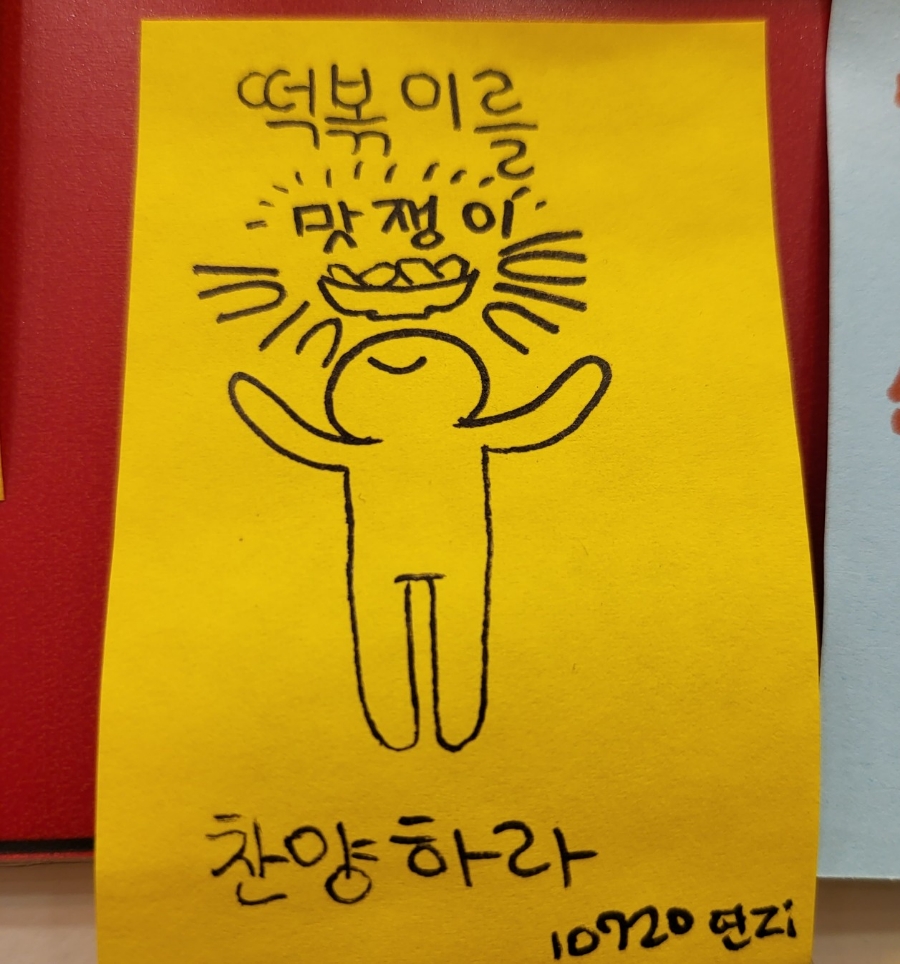 떡볶이를
맛쟁이
찬양하라
10720 연지